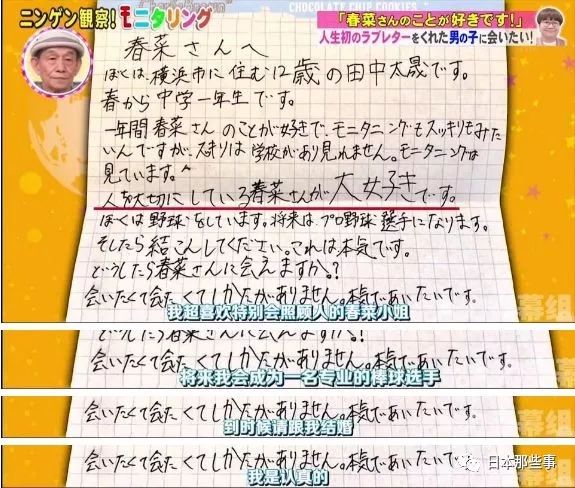 CHOCOLATE CHIP COOKIES
ニンゲン観察!モニタリング
「春菜さんのことが好きです!」
人生初のラブレターをくれた男の子に会いたい!
春菜さんへ
ぼくは、横浜市に住む12歳の田中太晟です。
春から中学一年生です。
一年間春菜さんのことが好きで、モニタニングもスッキリもみた
いんですが、スキリは学校があり見れません。モニタニングは
見ています。
人を大切にしている春菜さんが大好きです。
ぼくは野球をしています。将来は、プロ野球選手になります。
そしたら結こんしてください。これは本気です。
どうしたら春菜さんに会えますか。?
会いたくて会たくてしかたがありません。本気であいたいです。
我超喜欢特别会照顾人的春菜小姐
幕组
どうしたら春菜さんに会えますか。?
会いたくて会たくてしかたがありません。本気であいたいです。
将来我会成为一名专业的棒球选手
幕组
会いたくて会たくてしかたがありません。本気であいたいです。
到时候请跟我结婚
幕组
会いたくて会たくてしかたがありません。本気であいたいです。
我是认真的
日本那些事